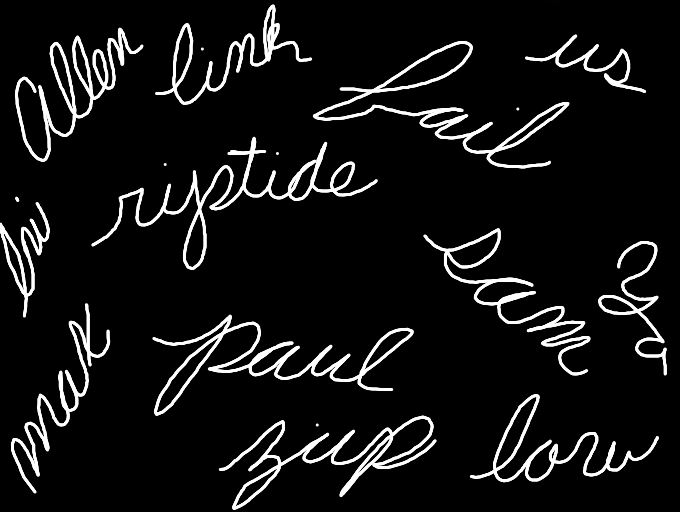 allen
link
us
fail
riptide
sam
mak
paul
zip